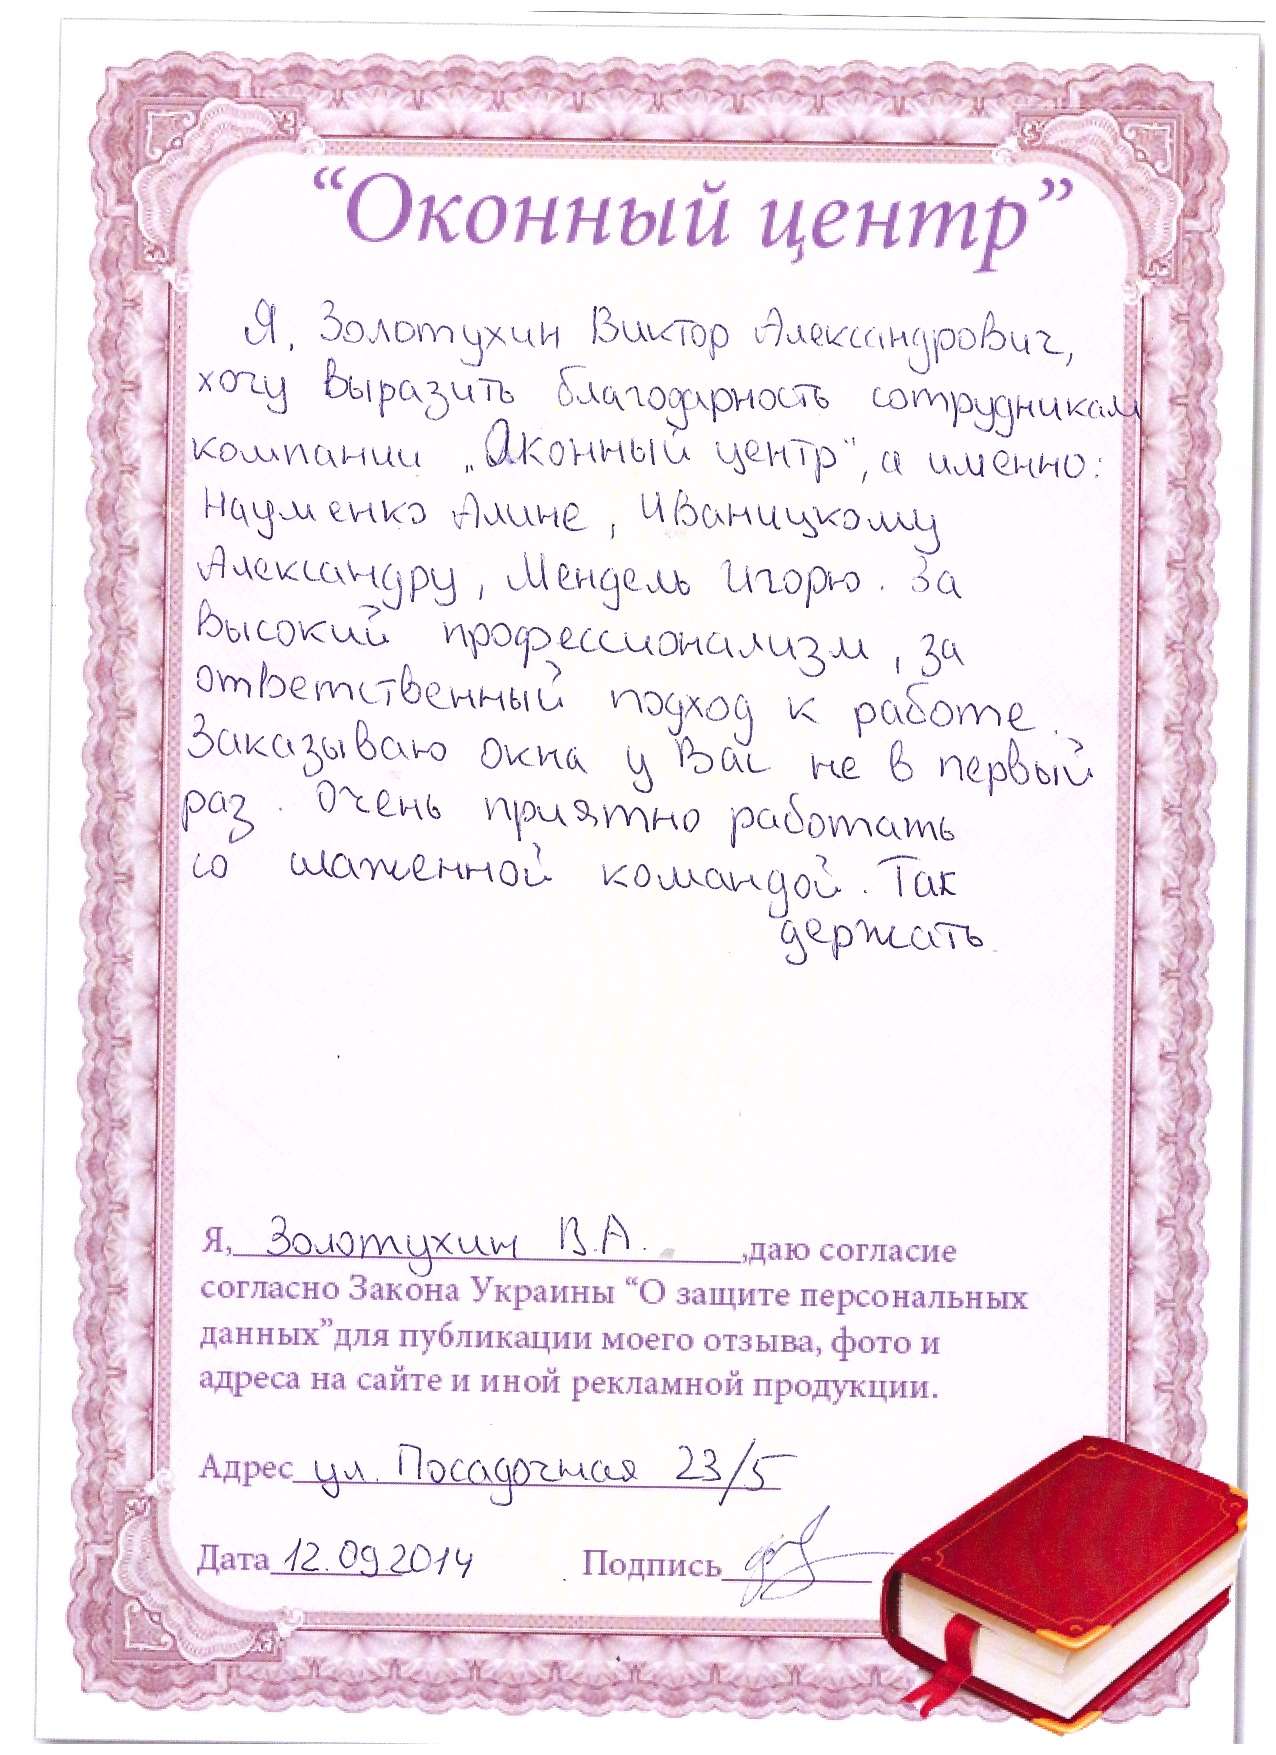 “Оконный центр”
Я, Золотухин Виктор Александрович,
хочу выразить благодарность сотрудникам
компании „Оконный центр“, а именно:
Науменко Алине, Иваницкому
Александру, Мендель Игорю. За
высокий профессионализм, за
ответственный подход к работе.
Заказываю окна у Вас не в первый
раз. Очень приятно работать
со слаженной командой. Так
держать.
Я, Золотухин В.А. ,даю согласие
согласно Закона Украины “О защите персональных
данных”для публикации моего отзыва, фото и
адреса на сайте и иной рекламной продукции.
Адрес ул. Посадочная 23/5
Дата 12.09.2014 Подпись